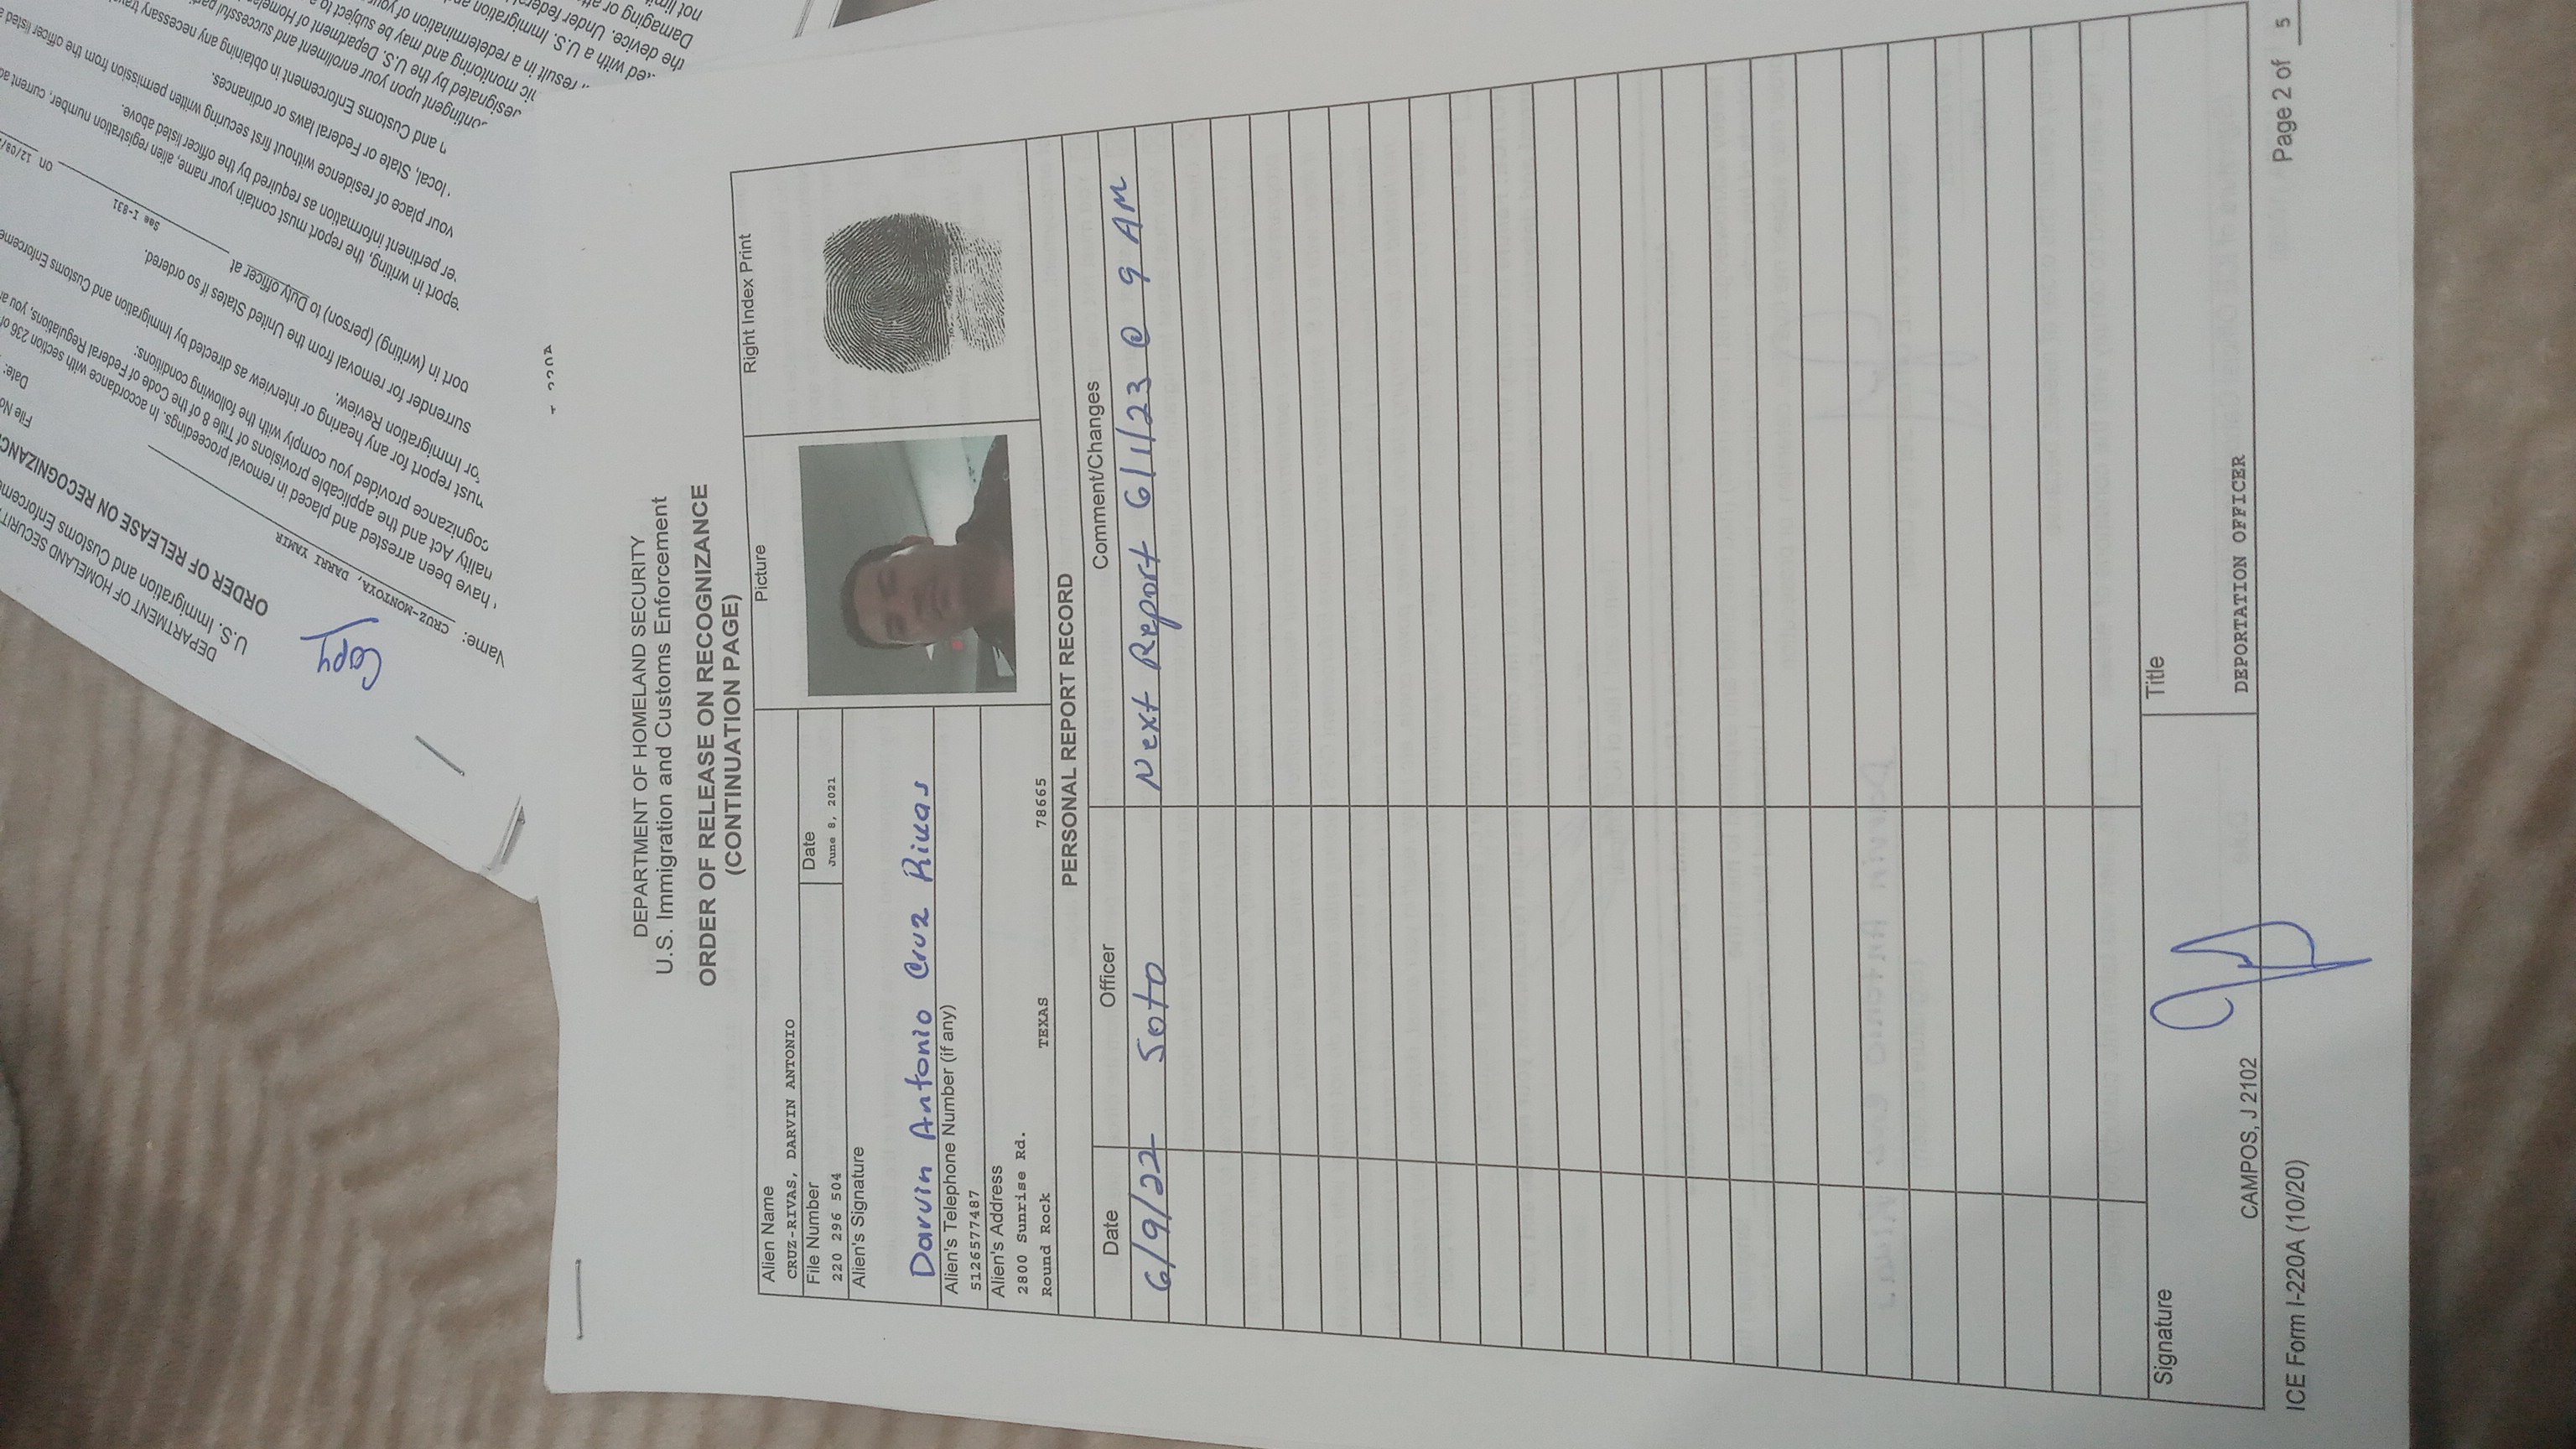 DEPARTMENT OF HOMELAND SECURITY
U.S. Immigration and Customs Enforcement
ORDER OF RELEASE ON RECOGNIZANCE
(CONTINUATION PAGE)
Alien Name
CRUZ-RIVAS, DARVIN ANTONIO
File Number
220 296 504
Date
June 8, 2021
Alien's Signature
Darvin Antonio Cruz Rivas
Alien's Telephone Number (if any)
5126577487
Alien's Address
2800 Sunrise Rd.
Round Rock TEXAS 78665
Picture
Right Index Print
PERSONAL REPORT RECORD
Date Officer Comment/Changes
6/9/22 Soto Next Report 6/1/23 @ 9 AM
Signature
CAMPOS, J 2102
Title
DEPORTATION OFFICER
ICE Form I-220A (10/20)
Page 2 of 5
Copy
DEPARTMENT OF HOMELAND SECURIT
U.S. Immigration and Customs Enforceme
ORDER OF RELEASE ON RECOGNIZANC
File No
Name: CRUZ-MONTOYA, DARRI YAMIR
Date:
have been arrested and placed in removal proceedings. In accordance with section 236 of
nality Act and the applicable provisions of Title 8 of the Code of Federal Regulations, you a
cognizance provided you comply with the following conditions:
must report for any hearing or interview as directed by Immigration and Customs Enforceme
for Immigration Review.
surrender for removal from the United States if so ordered.
port in (writing) (person) to Duty officer at See I-831 on 12/09/
eport in writing, the report must contain your name, alien registration number, current ad
er pertinent information as required by the officer listed above.
your place of residence without first securing written permission from the officer listed
local, State or Federal laws or ordinances.
n and Customs Enforcement in obtaining any necessary trave
ontingent upon your enrollment and successful parti
esignated by the U.S. Department of Homelan
nic monitoring and may be subject to a
result in a redetermination of your
ed with a U.S. Immigration and
the device. Under federal
Damaging or att
not limit